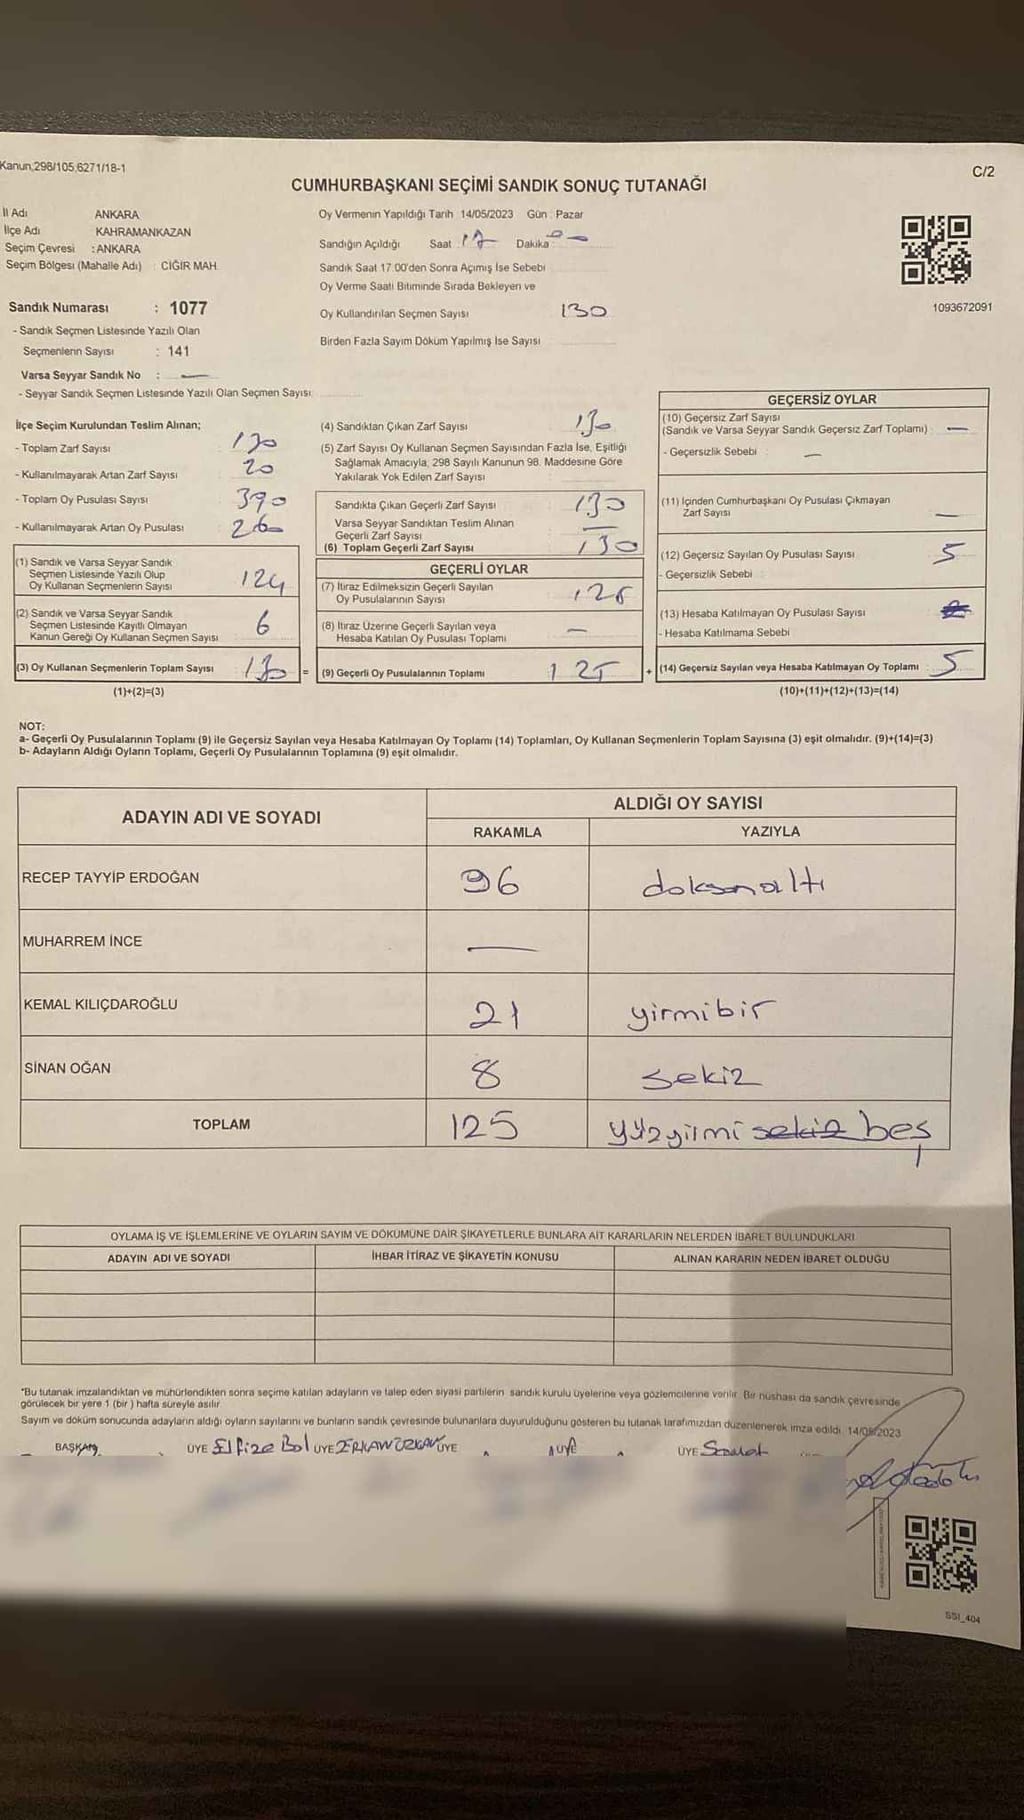 Kanun;298/105,6271/18-1
C/2
CUMHURBAŞKANI SEÇİMİ SANDIK SONUÇ TUTANAĞI
İl Adı ANKARA
İlçe Adı KAHRAMANKAZAN
Seçim Çevresi : ANKARA
Seçim Bölgesi (Mahalle Adı) : CİĞİR MAH.
Sandık Numarası : 1077
- Sandık Seçmen Listesinde Yazılı Olan
Seçmenlerin Sayısı : 141
Varsa Seyyar Sandık No : —
- Seyyar Sandık Seçmen Listesinde Yazılı Olan Seçmen Sayısı:
Oy Vermenin Yapıldığı Tarih 14/05/2023 Gün : Pazar
Sandığın Açıldığı Saat : 17 Dakika :
Sandık Saat 17.00'den Sonra Açımış İse Sebebi
Oy Verme Saati Bitiminde Sırada Bekleyen ve
Oy Kullandırılan Seçmen Sayısı 130
Birden Fazla Sayım Döküm Yapılmış İse Sayısı
1093672091
İlçe Seçim Kurulundan Teslim Alınan;
- Toplam Zarf Sayısı
- Kullanılmayarak Artan Zarf Sayısı 20
- Toplam Oy Pusulası Sayısı 390
- Kullanılmayarak Artan Oy Pusulası 260
(1) Sandık ve Varsa Seyyar Sandık
Seçmen Listesinde Yazılı Olup
Oy Kullanan Seçmenlerin Sayısı 124
(2) Sandık ve Varsa Seyyar Sandık
Seçmen Listesinde Kayıtlı Olmayan
Kanun Gereği Oy Kullanan Seçmen Sayısı 6
(3) Oy Kullanan Seçmenlerin Toplam Sayısı 130 =
(1)+(2)=(3)
(4) Sandıktan Çıkan Zarf Sayısı 130
(5) Zarf Sayısı Oy Kullanan Seçmen Sayısından Fazla İse, Eşitliği
Sağlamak Amacıyla, 298 Sayılı Kanunun 98. Maddesine Göre
Yakılarak Yok Edilen Zarf Sayısı
Sandıkta Çıkan Geçerli Zarf Sayısı 130
Varsa Seyyar Sandıktan Teslim Alınan
Geçerli Zarf Sayısı —
(6) Toplam Geçerli Zarf Sayısı 130
GEÇERLİ OYLAR
(7) İtiraz Edilmeksizin Geçerli Sayılan
Oy Pusulalarının Sayısı 125
(8) İtiraz Üzerine Geçerli Sayılan veya
Hesaba Katılan Oy Pusulası Toplamı —
(9) Geçerli Oy Pusulalarının Toplamı 125 +
GEÇERSİZ OYLAR
(10) Geçersiz Zarf Sayısı
(Sandık ve Varsa Seyyar Sandık Geçersiz Zarf Toplamı) : —
- Geçersizlik Sebebi : —
(11) İçinden Cumhurbaşkanı Oy Pusulası Çıkmayan
Zarf Sayısı —
(12) Geçersiz Sayılan Oy Pusulası Sayısı 5
- Geçersizlik Sebebi :
(13) Hesaba Katılmayan Oy Pusulası Sayısı
- Hesaba Katılmama Sebebi
(14) Geçersiz Sayılan veya Hesaba Katılmayan Oy Toplamı 5
(10)+(11)+(12)+(13)=(14)
NOT:
a- Geçerli Oy Pusulalarının Toplamı (9) ile Geçersiz Sayılan veya Hesaba Katılmayan Oy Toplamı (14) Toplamları, Oy Kullanan Seçmenlerin Toplam Sayısına (3) eşit olmalıdır. (9)+(14)=(3)
b- Adayların Aldığı Oyların Toplamı, Geçerli Oy Pusulalarının Toplamına (9) eşit olmalıdır.
ADAYIN ADI VE SOYADI ALDIĞI OY SAYISI
RAKAMLA YAZIYLA
RECEP TAYYİP ERDOĞAN 96 doksanaltı
MUHARREM İNCE —
KEMAL KILIÇDAROĞLU 21 yirmibir
SİNAN OĞAN 8 sekiz
TOPLAM 125 yüzyirmi sekiz beş
OYLAMA İŞ VE İŞLEMLERİNE VE OYLARIN SAYIM VE DÖKÜMÜNE DAİR ŞİKAYETLERLE BUNLARA AİT KARARLARIN NELERDEN İBARET BULUNDUKLARI
ADAYIN ADI VE SOYADI İHBAR İTİRAZ VE ŞİKAYETİN KONUSU ALINAN KARARIN NEDEN İBARET OLDUĞU
*Bu tutanak imzalandıktan ve mühürlendikten sonra seçime katılan adayların ve talep eden siyasi partilerin sandık kurulu üyelerine veya gözlemcilerine verilir. Bir nüshası da sandık çevresinde
görülecek bir yere 1 (bir ) hafta süreyle asılır.
Sayım ve döküm sonucunda adayların aldığı oyların sayılarını ve bunların sandık çevresinde bulunanlara duyurulduğunu gösteren bu tutanak tarafımızdan düzenlenerek imza edildi. 14/05/2023
BAŞKAN ÜYE Elfize Bol ÜYE ERKAN ÖZKAN ÜYE ÜYE ÜYE
SSI_404